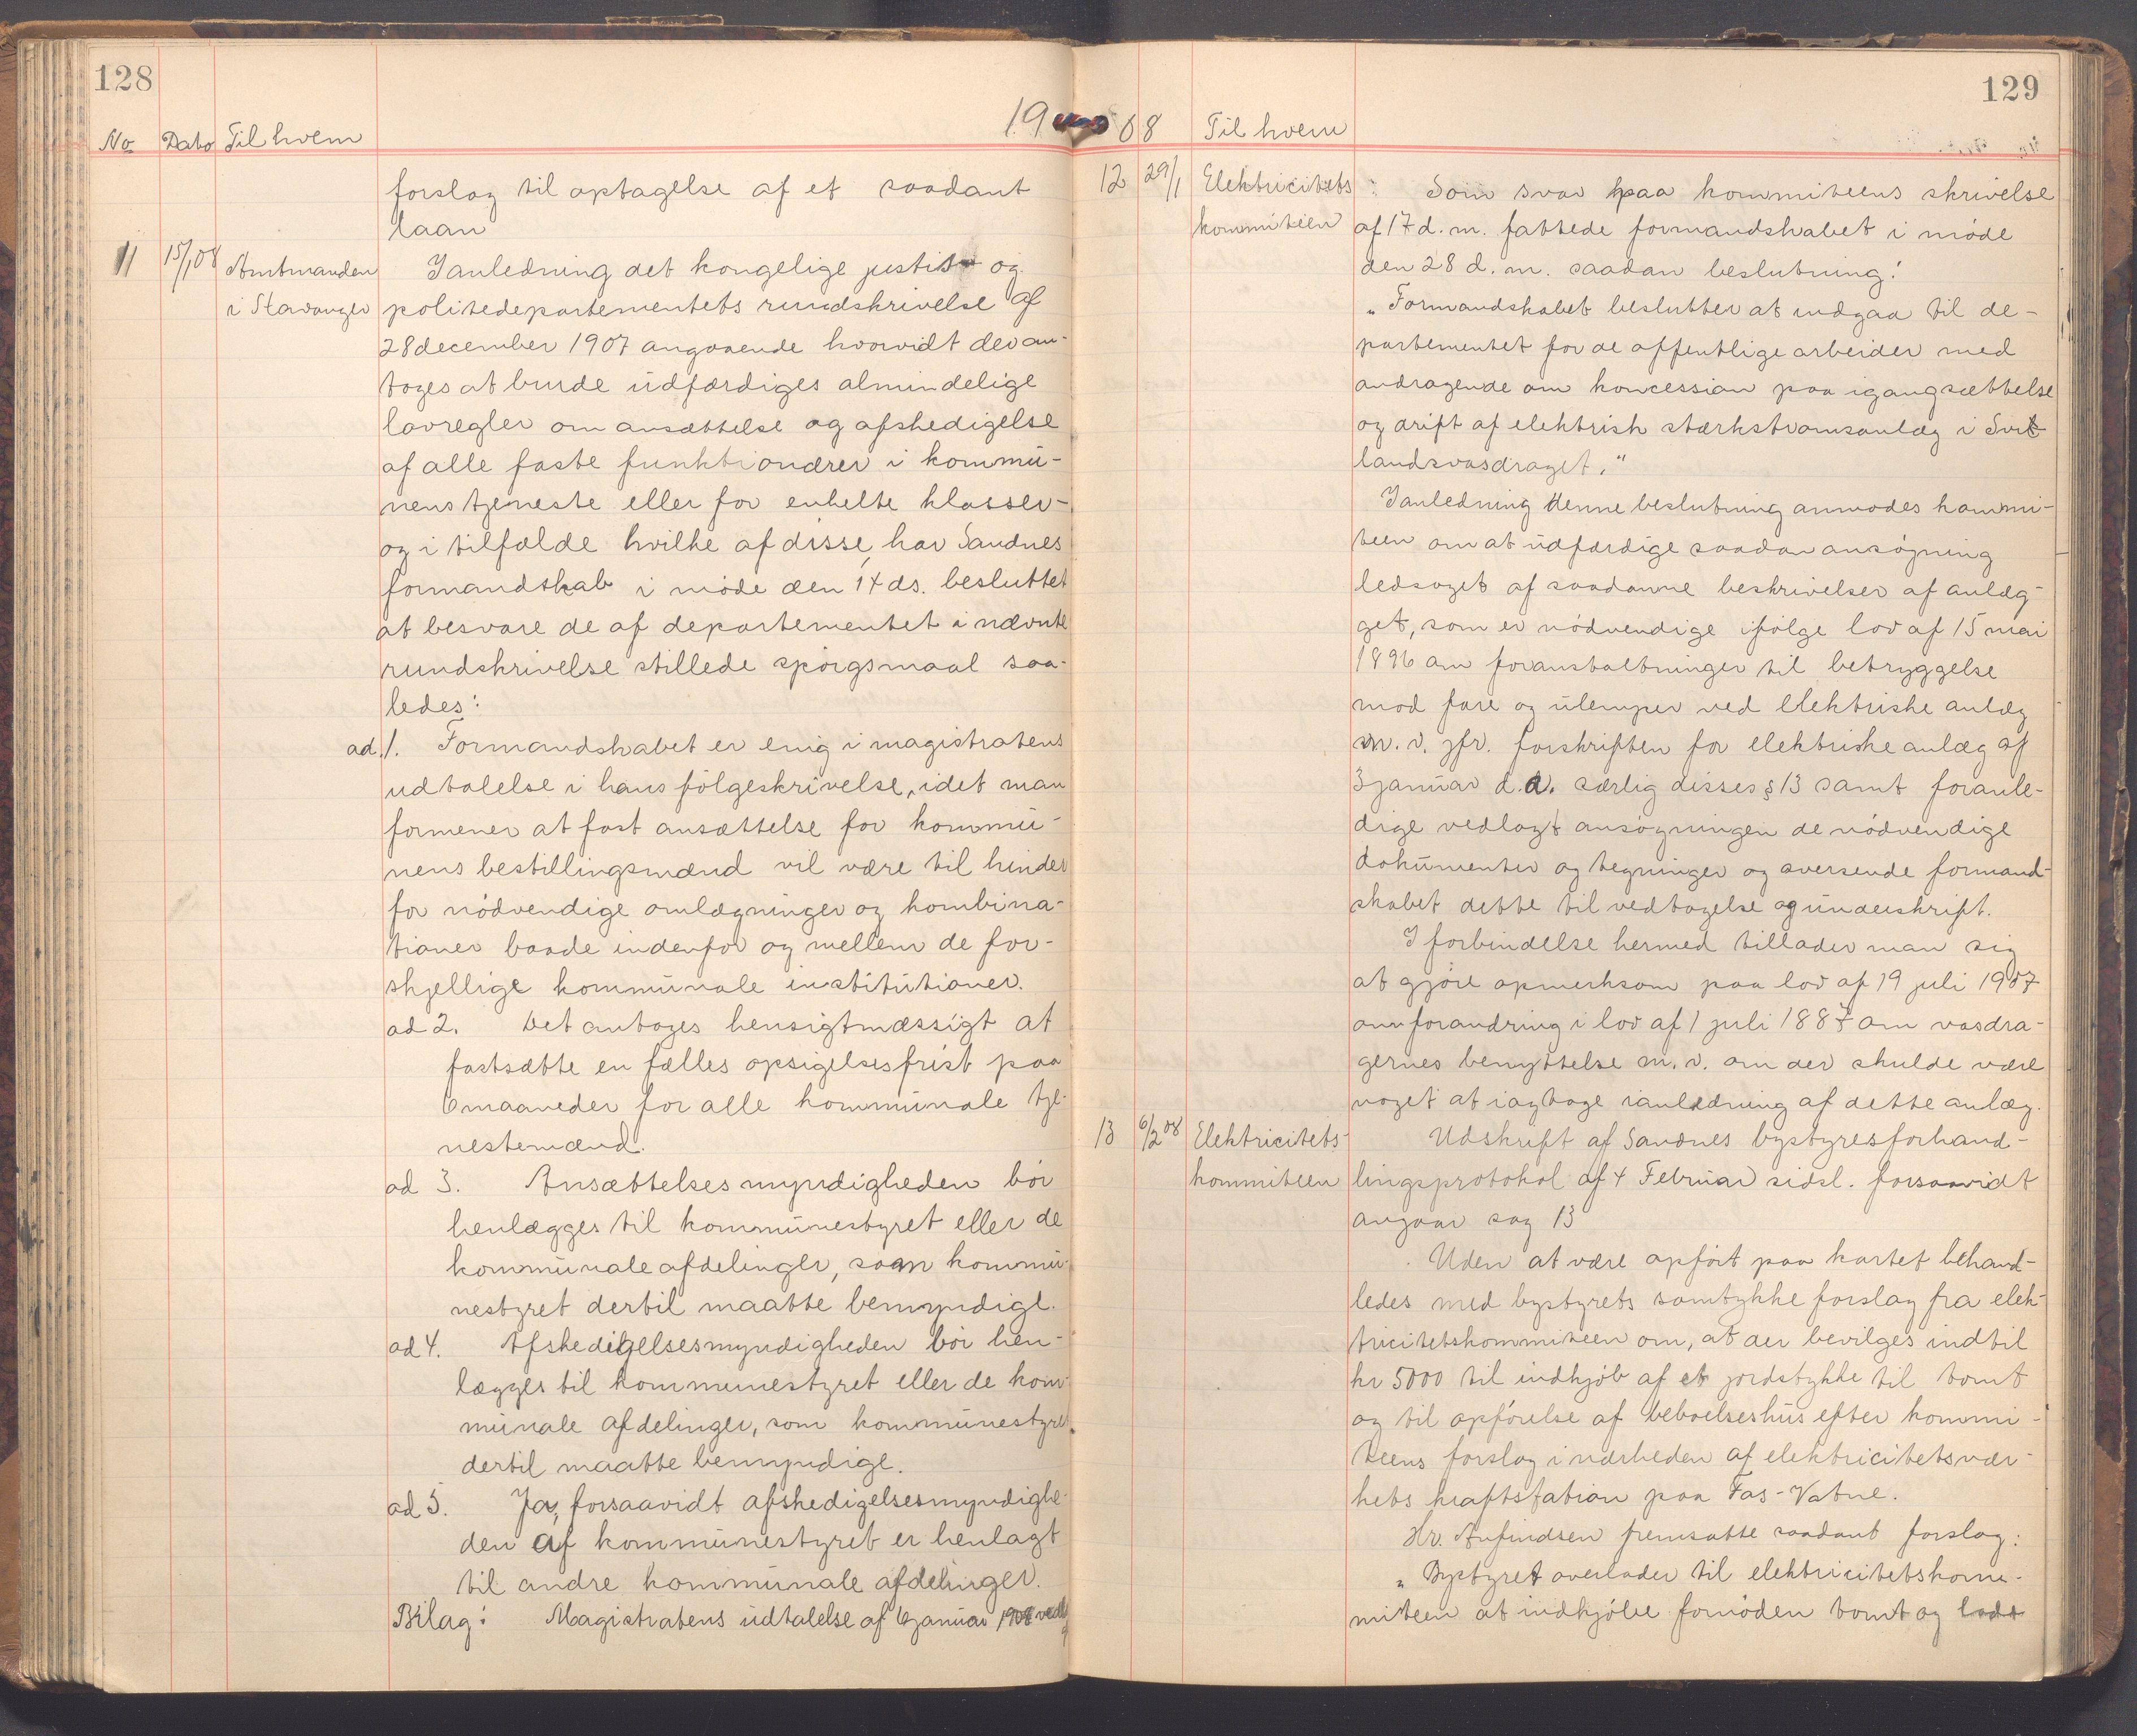 128
No Dato Til hvem 19
forslag til optagelse af et saadant
laan
11 15/1 08 Amtmanden i Stavanger
Ianledning det kongelige justis og
politidepartementets rundskrivelse af
28 december 1907 angaaende hvorvidt der an-
tages at burde udfærdiges almindelige
lovregler om ansættelse og afskedigelse
af alle faste funktionærer i kommu-
nens tjeneste eller for enkelte klasser-
og i tilfælde hvilke af disse, har Sandnes
formandskab i møde den 14 ds. besluttet
at besvare de af departementet i nævnte
rundskrivelse stillede spørgsmaal saa-
ledes:
ad. 1. Formandskabet er enig i magistratens
udtalelse i hans følgeskrivelse, idet man
formener at fast ansættelse for kommu-
nens bestillingsmænd vil være til hinder
for nødvendige omlægninger og kombina-
tioner baade indenfor og mellem de for-
skjellige kommunale institutioner.
ad 2. Det antages hensigtmæssigt at
fastsætte en fælles opsigelsesfrist paa
6 maaneder for alle kommunale tje-
nestemænd.
ad 3. Ansættelsesmyndigheden bør
henlægges til kommunestyret eller de
kommunale afdelinger, som kommu-
nestyret dertil maatte bemyndige.
ad 4. Afskedigelsesmyndigheden bør hen-
lægges til kommunestyret eller de kom-
munale afdelinger, som kommunestyret
dertil maatte bemyndige.
ad 5. Ja, forsaavidt afskedigelsesmyndighe-
den af kommunestyret er henlagt
til andre kommunale afdelinger.
Bilag: Magistratens udtalelse af 6 januar 1908 vedlg
129
08 Til hvem
12 29/1 Elektricitets kommiteen
: Som svar paa kommiteens skrivelse
af 17 d. m. fattede formandskabet i møde
den 28 d. m. saadan beslutning:
"Formandskabet beslutter at indgaa til de-
partementet for de offentlige arbeider med
andragende om koncession paa igangsættelse
og drift af elektrisk stærkstrømsanlæg i Svit
landsvasdraget."
Ianledning denne beslutning anmodes kommi-
teen om at udfærdige saadan ansøgning
ledsaget af saadanne beskrivelser af anlæg-
get, som er nødvendige ifølge lov af 15 mai
1896 om foranstaltninger til betryggelse
mod fare og ulemper ved elektriske anlæg
m. v. jfr. forskriften for elektriske anlæg af
3 januar d. a. særlig disses § 13 samt foranle-
dige vedlagt ansøgningen de nødvendige
dokumenter og tegninger og oversende formand-
skabet dette til vedtagelse og underskrift.
I forbindelse hermed tillader man sig
at gjøre opmerksom paa lov af 19 juli 1907
om forandring i lov af 1 juli 1887 om vasdra-
gernes benyttelse m. v. om der skulde være
noget at iagtage ianledning af dette anlæg.
13 6/2 08 Elektricitets- kommiteen
Udskrift af Sandnes bystyresforhand-
lingsprotokol af 4 Februar sidsl. forsaavidt
angaar sag 13
Uden at være opført paa kartet behand-
ledes med bystyrets samtykke forslag fra elek-
tricitetskommiteen om, at der bevilges indtil
kr 5000 til indkjøb af et jordstykke til tomt
og til opførelse af beboelseshus efter kommi-
teens forslag i nærheden af elektricitetsvær-
kets kraftstation paa Fos-Vatne.
Hr. Anfindsen fremsatte saadant forslag:
"Bystyret overlader til elektricitetskom-
miteen at indkjøbe fornøden tomt og lade